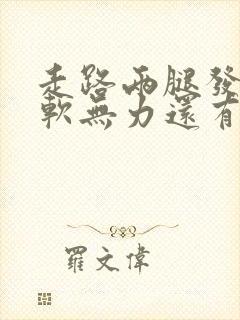 走路兩腿發
軟無力還有
羅文偉